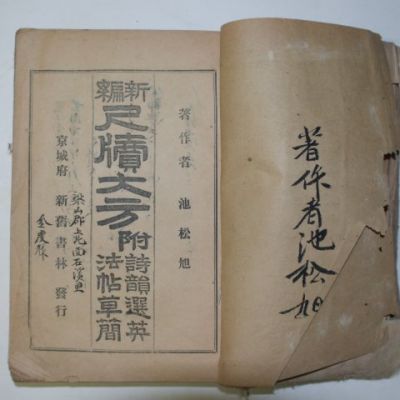 著作者池松旭
著作者 池松旭
新編尺牘大方附詩韻選英法帖草簡
京城府 新舊書林 發行
梁山郡上北面石溪里